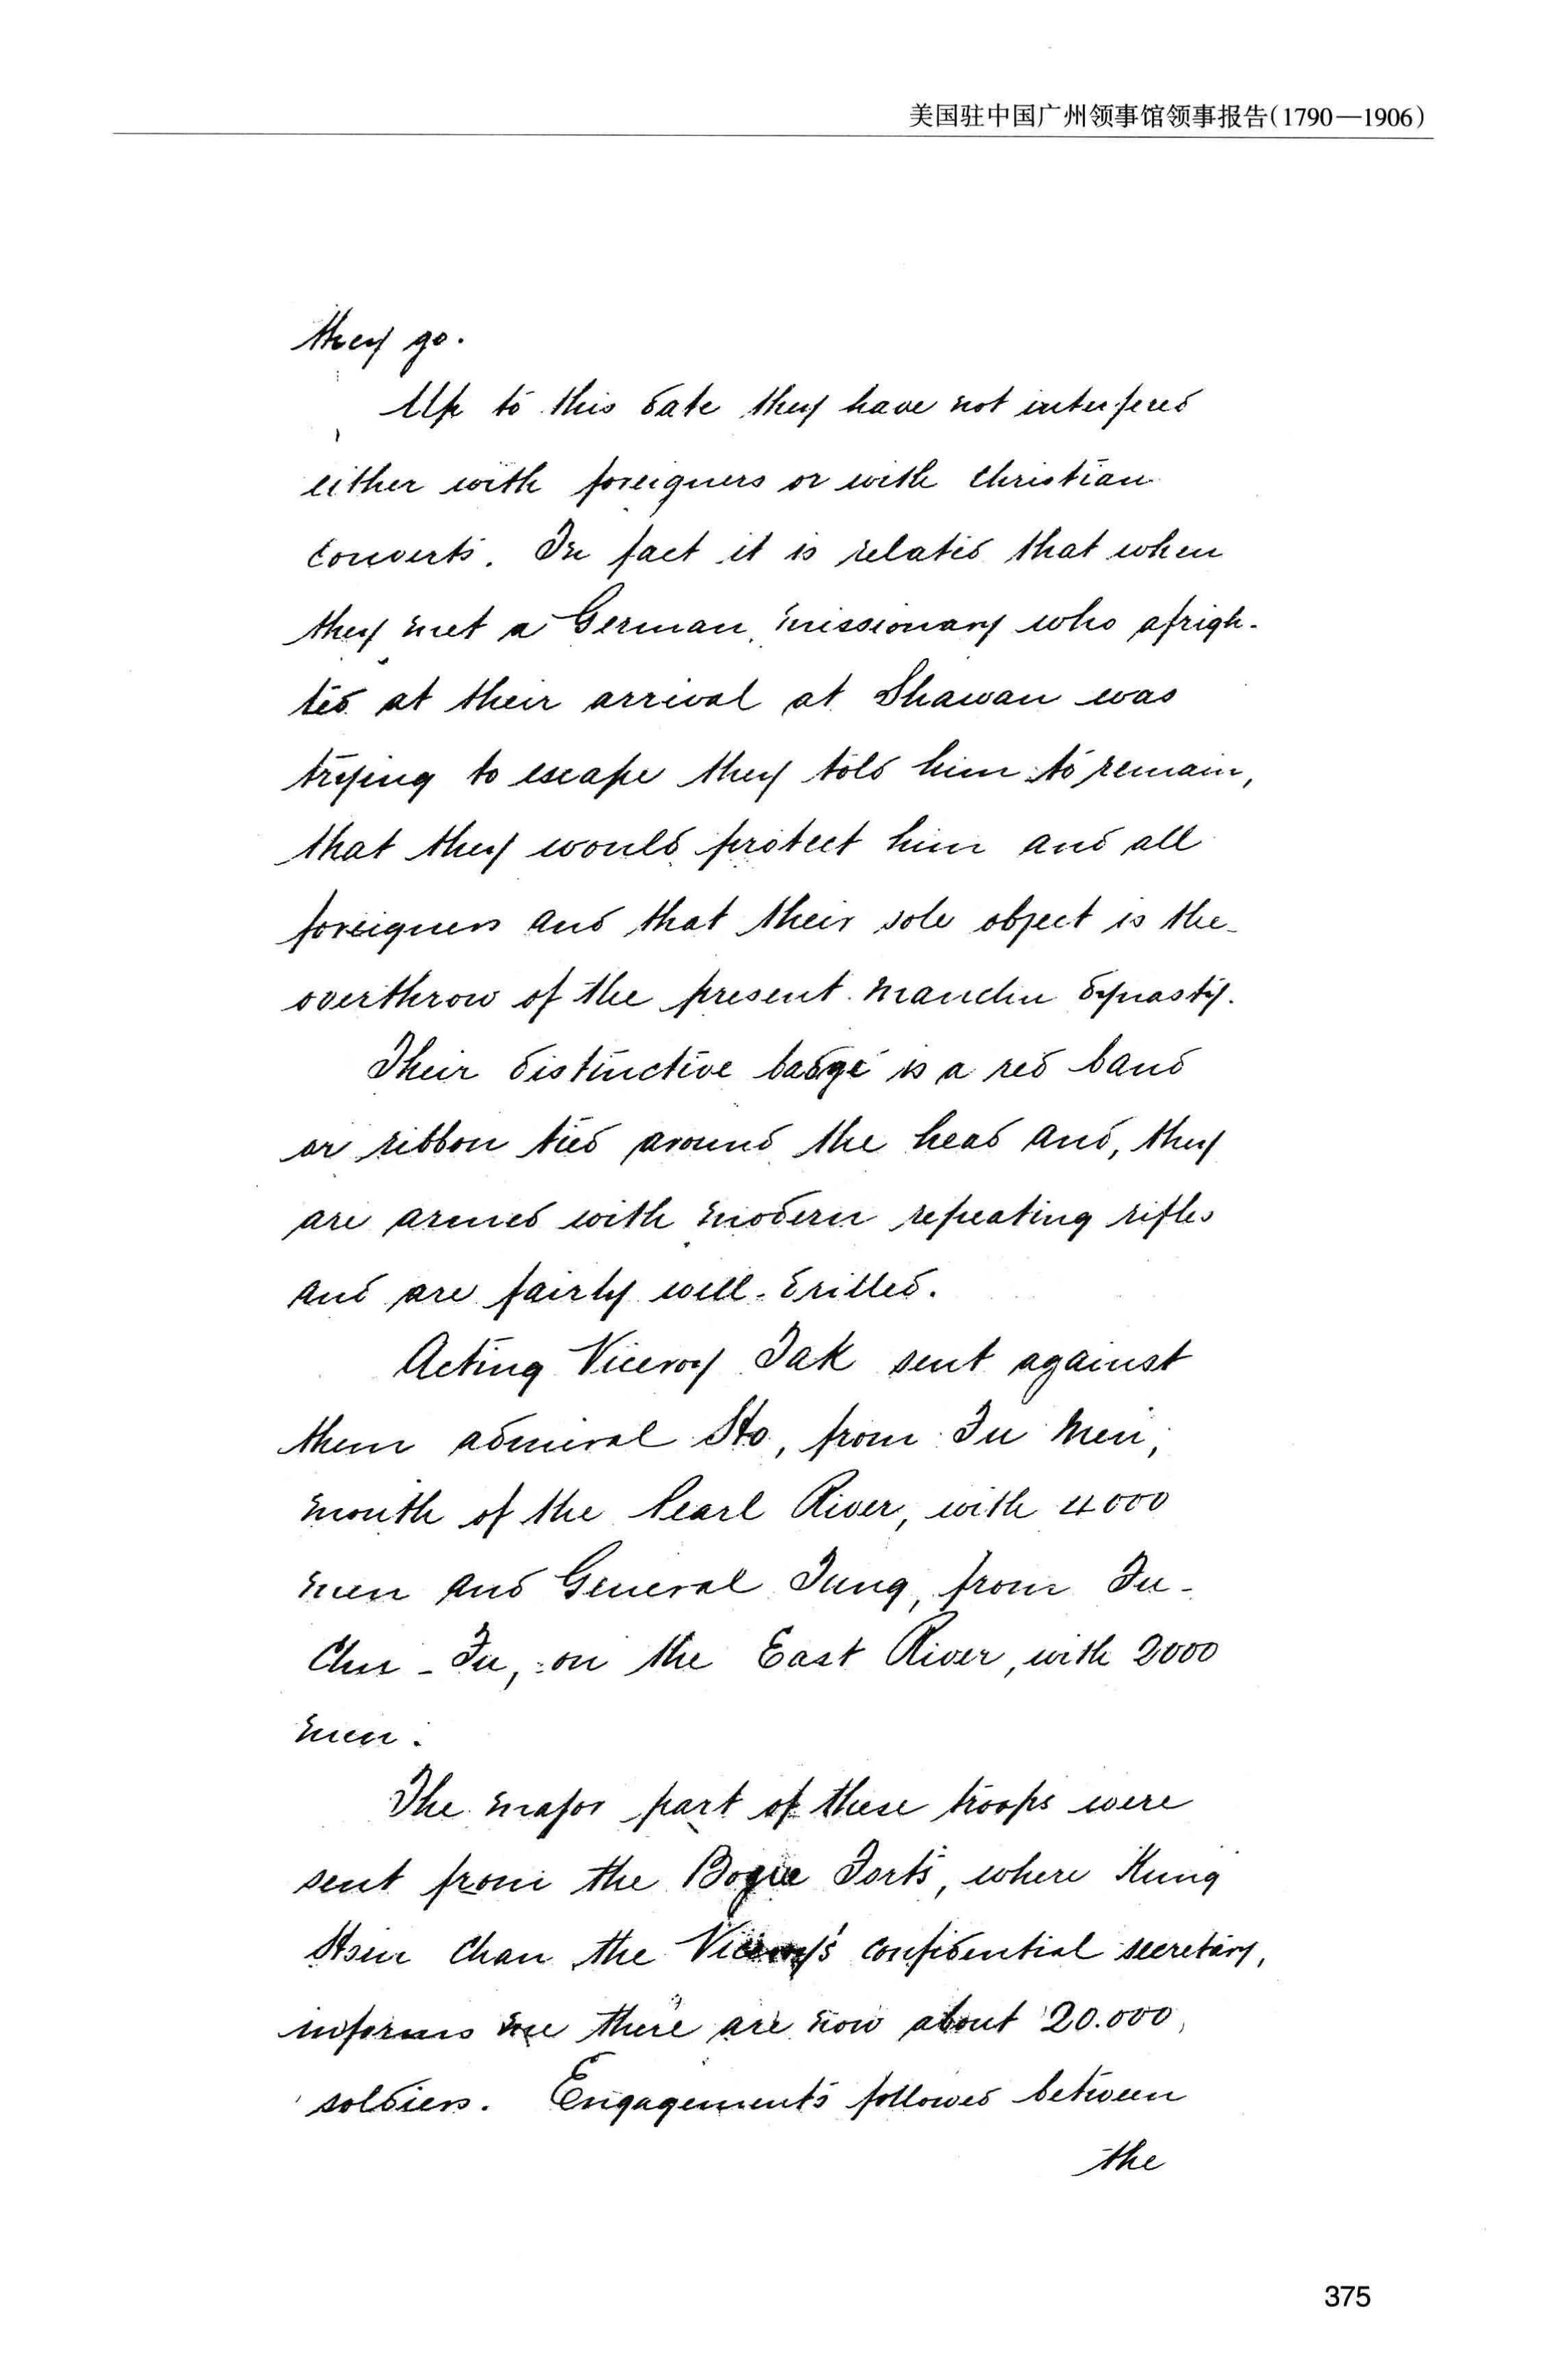 美国驻中国广州领事馆领事报告(1790—1906)
they go.
Up to this date they have not interfered
either with foreigners or with Christian
converts. In fact it is related that when
they met a German missionary who afrigh-
ted at their arrival at Shawan was
trying to escape they told him to remain,
that they would protect him and all
foreigners and that their sole object is the
overthrow of the present Manchu dynasty.
Their distinctive badge is a red band
or ribbon tied around the head and, they
are armed with modern repeating rifles
and are fairly well-drilled.
Acting Viceroy Tak sent against
them admiral Ho, from Fu Men,
mouth of the Pearl River, with 4000
men and General Tung, from Fu-
Chu-Fu, on the East River, with 2000
men.
The major part of these troops were
sent from the Bogue Forts, where Kung
Hsin Chan the Viceroy's confidential secretary,
informs me there are now about 20.000
soldiers. Engagements followed between
the
375